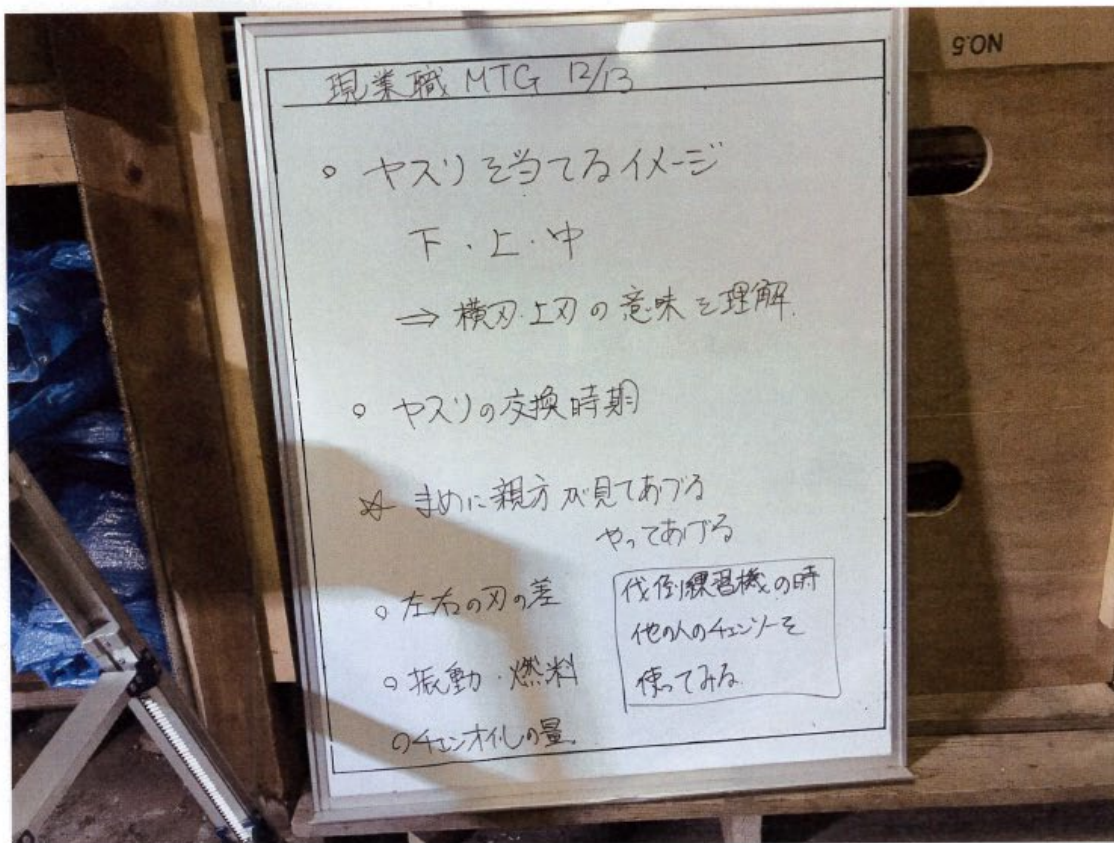 現業職 MTG 12/13
○ ヤスリを当てるイメージ
下・上・中
⇒ 横刃・上刃の意味を理解
○ ヤスリの交換時期
☆ まめに親方が見てあげる
やってあげる
○ 左右の刃の差
○ 振動・燃料
○ チェンオイルの量
伐倒練習機の時
他の人のチェンソーを
使ってみる
NO.5